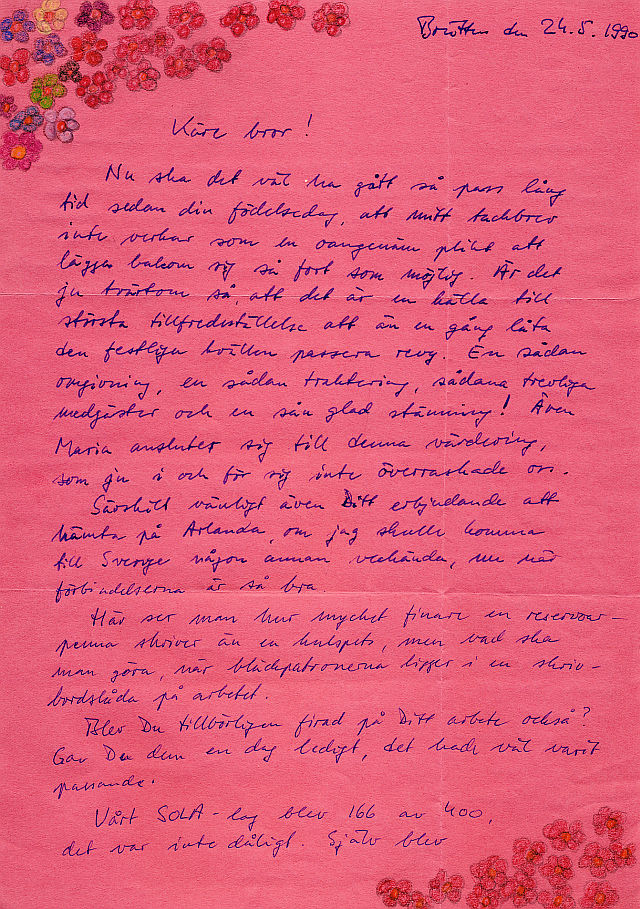 den 24.5.1990
Käre bror!
Nu ska det väl ha gått så pass lång
tid sedan din födelsedag, att mitt tackbrev
inte verkar som en oangenäm plikt att
lägga bakom sig så fort som möjlig. Är det
ju tvärtom så, att det är en källa till
största tillfredställelse att än en gång låta
den festliga kvällen passera revy. En sådan
omgivning, en sådan traktering, sådana trevliga
medgäster och en sån glad stämning! Även
Maria ansluter sig till denna värdering,
som ju i och för sig inte överraskade oss.
Särskilt vänligt även Ditt erbjudande att
hämta på Arlanda, om jag skulle komma
till Sverige någon annan veckända, nu när
förbindelserna är så bra.
Här ser man hur mycket finare en reservoar-
penna skriver än en kulspets, men vad ska
man göra, när bläckpatronerna ligger i en skriv-
bordslåda på arbetet.
Blev Du tillbörligen firad på Ditt arbete också?
Gav De dem en dag ledigt, det hade väl varit
passande.
Vårt SOLA-lag blev 166 av 400,
det var inte dåligt. Själv blev